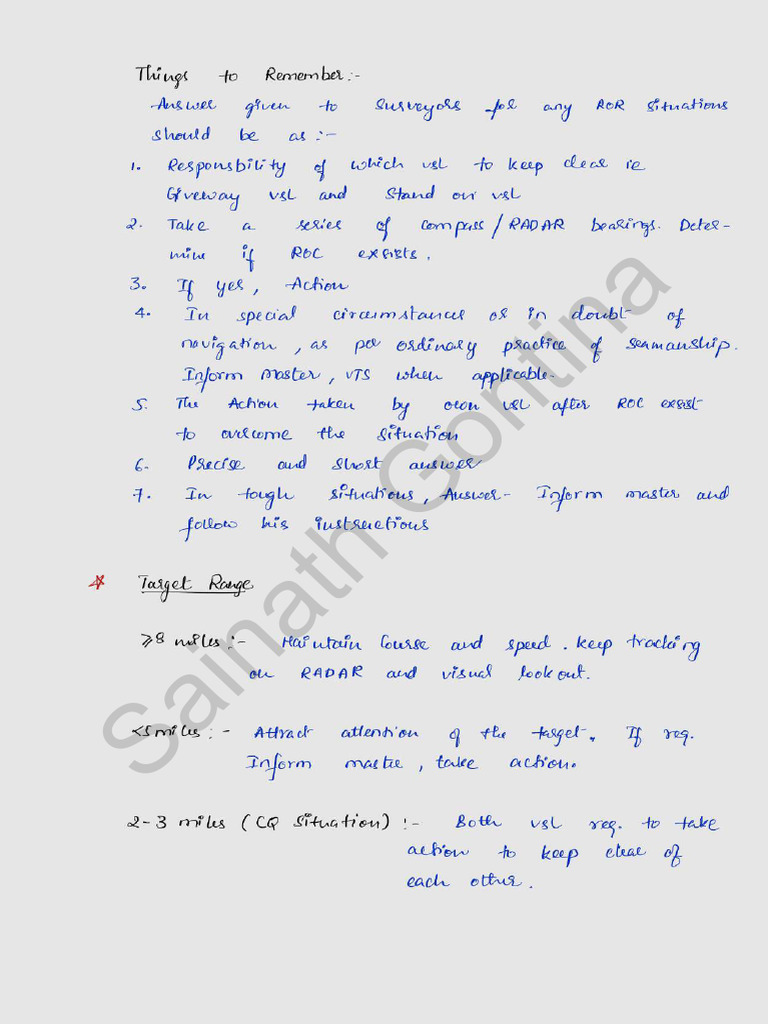 Things to Remember:-
Answer given to Surveyors for any ROR situations
should be as :-
1. Responsbility of which vsl to keep clear ie
Giveway vsl and Stand on vsl
2. Take a series of compass/RADAR bearings. Deter-
mine if ROC exsists.
3. If yes, Action
4. In special circumstances or in doubt of
navigation, as per ordinary practice of seamanship.
Inform master, VTS when applicable.
5. The Action taken by own vsl after ROC exsist
to overcome the situation
6. Precise and short answer
7. In tough situations, Answer- Inform master and
follow his instructions
Target Range
⩾8 miles:- Maintain Course and speed. keep tracking
on RADAR and visual lookout.
<5miles:- Attract attention of the target. If req.
Inform master, take action.
2-3 miles (CQ Situation) :- Both vsl req. to take
action to keep clear of
each other.
Sainath Gontina